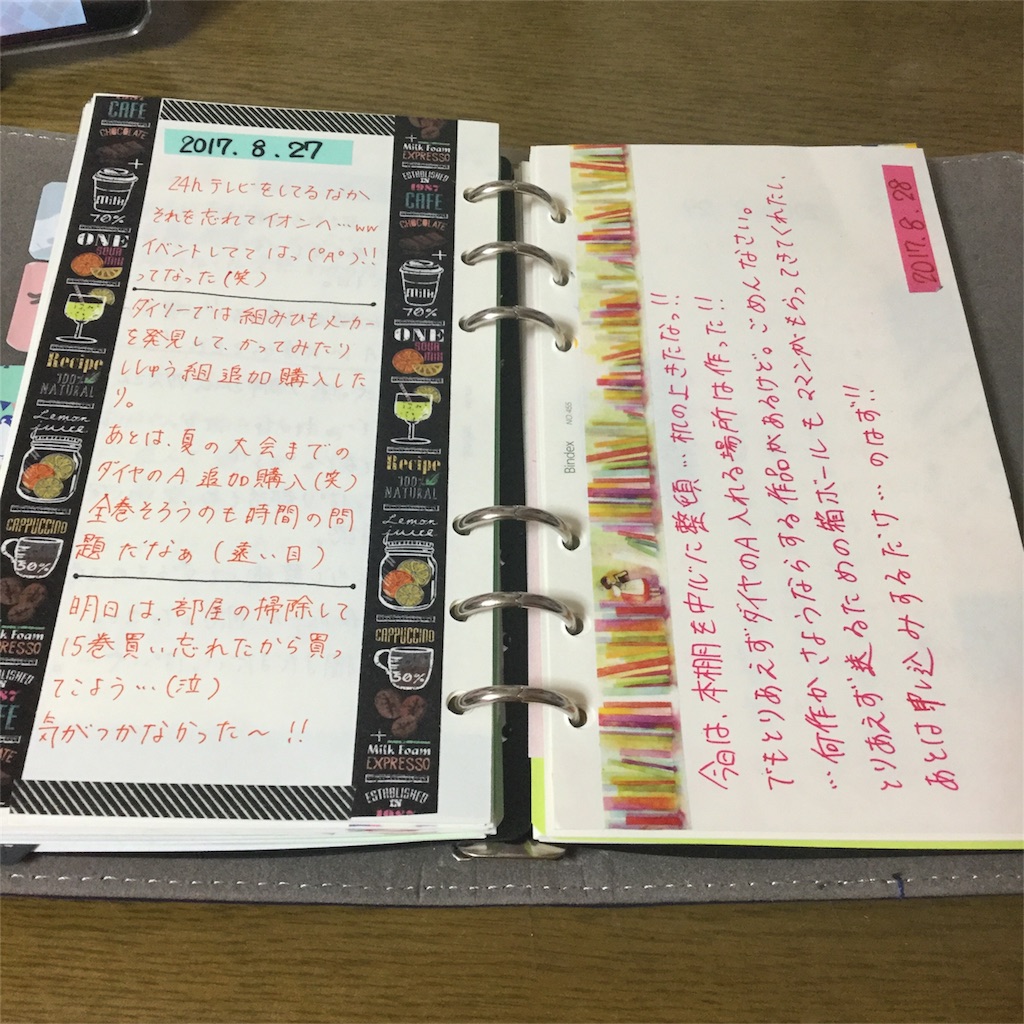 2017. 8. 27
24hテレビをしてるなか
それを忘れてイオンへ…ww
イベントしてて はっ(°A°)!!
ってなった(笑)
ダイソーでは組みひもメーカー
を発見して、かってみたり
ししゅう組 追加購入した
り。
あとは、夏の大会までの
ダイヤのA 追加購入(笑)
全巻そろうのも時間の問
題だなぁ (遠い目)
明日は、部屋の掃除して
15巻買い忘れたから買っ
てこよう…(泣)
気がつかなかった〜!!
CAFE
CHOCOLATE
Milk
70%
ONE
SODA
MIX
Recipe
100%
NATURAL
Lemon
juice
CAPPUCCINO
30%
Milk Foam
EXPRESSO
ESTABLISHED
IN
1987
CAFE
Milk Foam
EXPRESSO
ESTABLISHED
IN
1987
CAFE
CHOCOLATE
Milk
70%
ONE
SODA
MIX
Recipe
100%
NATURAL
Lemon
juice
CAPPUCCINO
30%
Milk Foam
EXPRESSO
ESTABLISHED
IN
1987
Bindex NO.455
2017. 8. 28
今日は、本棚を中心に整頓…机の上きたなっ!!
でもとりあえずダイヤのA入れる場所は作った!!
…何作かさようならする作品があるけど。ごめんなさい。
とりあえず送るための箱ボールもママンがもらってきてくれたし、
あとは申し込みするだけ…のはず!!